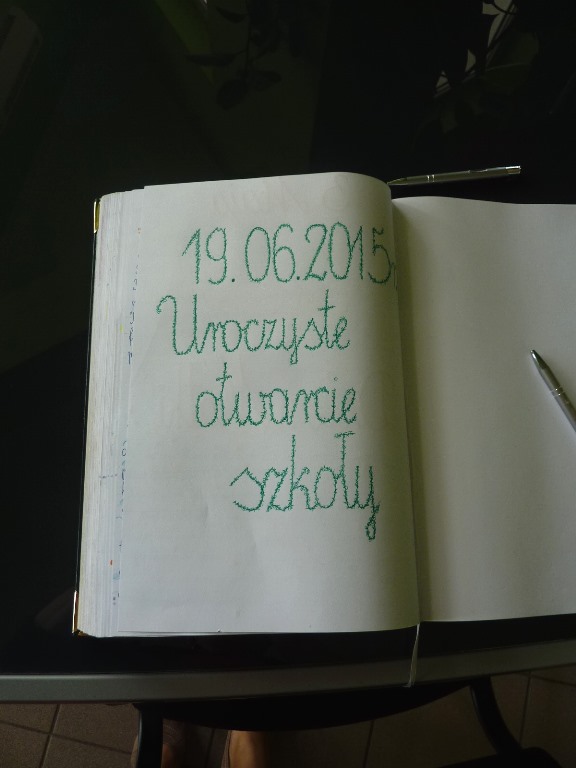 19.06.2015r
Uroczyste
otwarcie
szkoły